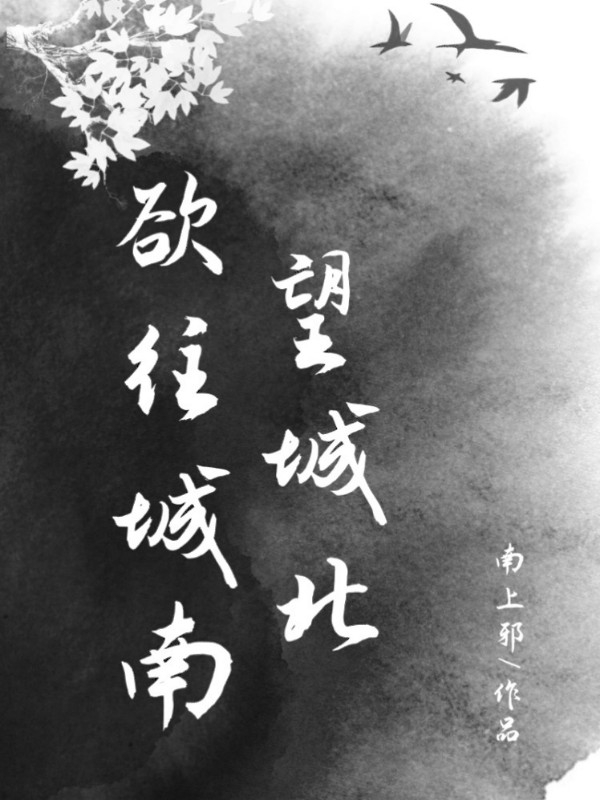 欲往城南
望城北
南上邪\作品